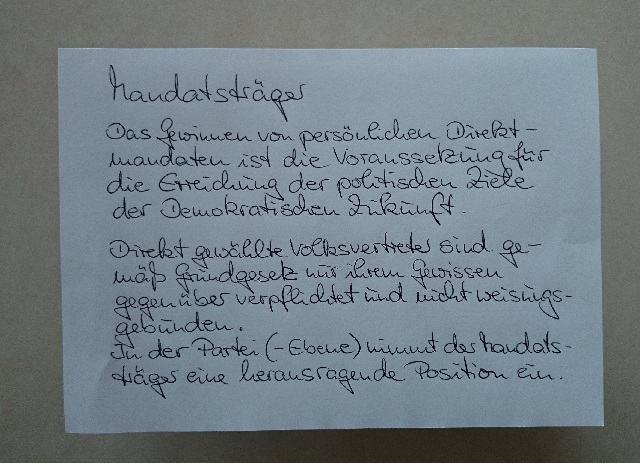 Mandatsträger
Das Gewinnen von persönlichen Direkt-
mandaten ist die Voraussetzung für
die Erreichung der politischen Ziele
der Demokratischen Zukunft.
Direkt gewählte Volksvertreter sind ge-
mäß Grundgesetz nur ihrem Gewissen
gegenüber verpflichtet und nicht weisungs-
gebunden.
In der Partei (-Ebene) nimmt der Mandats-
träger eine herausragende Position ein.